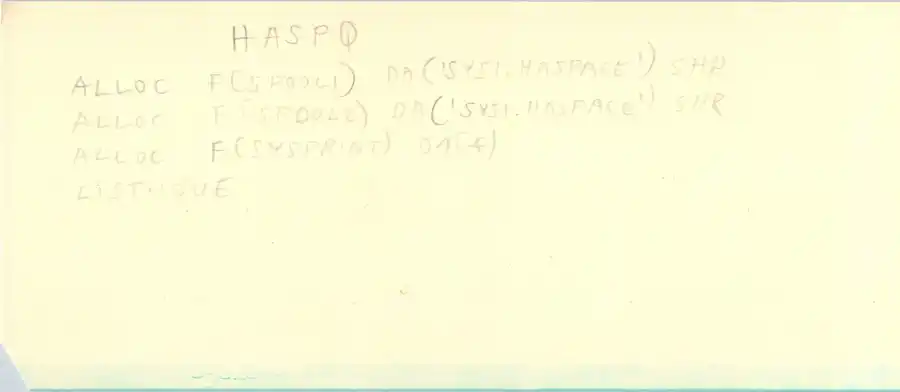 HASPQ
ALLOC F(SPOOL1) DA('SYS1.HASPACE') SHR
ALLOC F(SPOOL2) DA('SYS1.HASPACE') SHR
ALLOC F(SYSPRINT) DA(*)